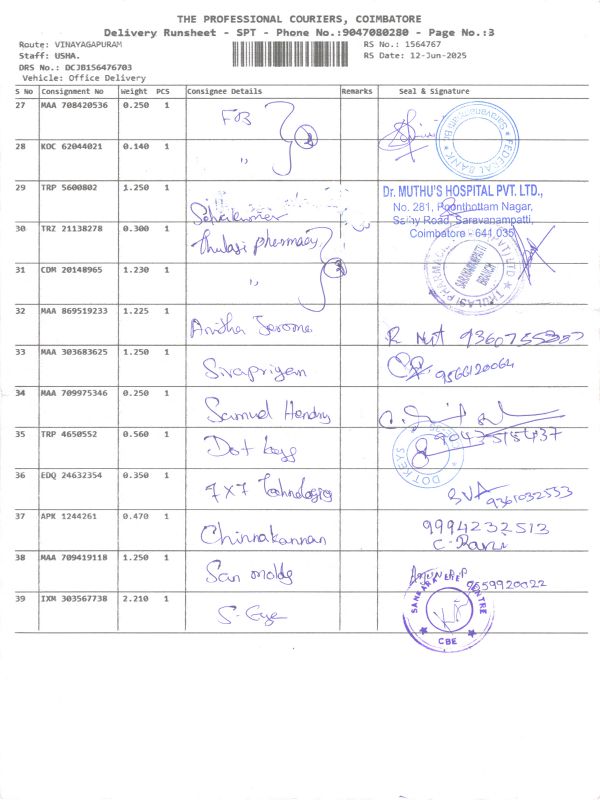 THE PROFESSIONAL COURIERS, COIMBATORE
Delivery Runsheet - SPT - Phone No.:9047080280 - Page No.:3
Route: VINAYAGAPURAM
RS No.: 1564767
Staff: USHA.
RS Date: 12-Jun-2025
DRS No.: DCJB156476703
Vehicle: Office Delivery
S No Consignment No Weight PCS Consignee Details Remarks Seal & Signature
27 MAA 708420536 0.250 1 FB
FEDERAL BANK
28 KOC 62044021 0.140 1 ,, 2
29 TRP 5600802 1.250 1 Selvakumar
Dr. MUTHU'S HOSPITAL PVT. LTD.,
No. 281, Poonthottam Nagar,
Sathy Road, Saravanampatti,
Coimbatore - 641 035
30 TRZ 21138278 0.300 1 Thulasi pharmacy
THULASI PHARMACI
SARAVANAMPATTI
BRANCH
31 CDM 20148965 1.230 1 ,,
32 MAA 869519233 1.225 1 Anitha Jerome
33 MAA 303683625 1.250 1 Sivapriyan 9566120064
34 MAA 709975346 0.250 1 Samuel Hendry
35 TRP 4650552 0.560 1 Dot keys
DOT KEYS
36 EDQ 24632354 0.350 1 7x7 Technologies
37 APK 1244261 0.470 1 Chinnakannan 9994232513
C-Rani
38 MAA 709419118 1.250 1 San molds 9659920022
39 IXM 303567738 2.210 1 S-Eye
SANKARA EYE CENTRE
CBE